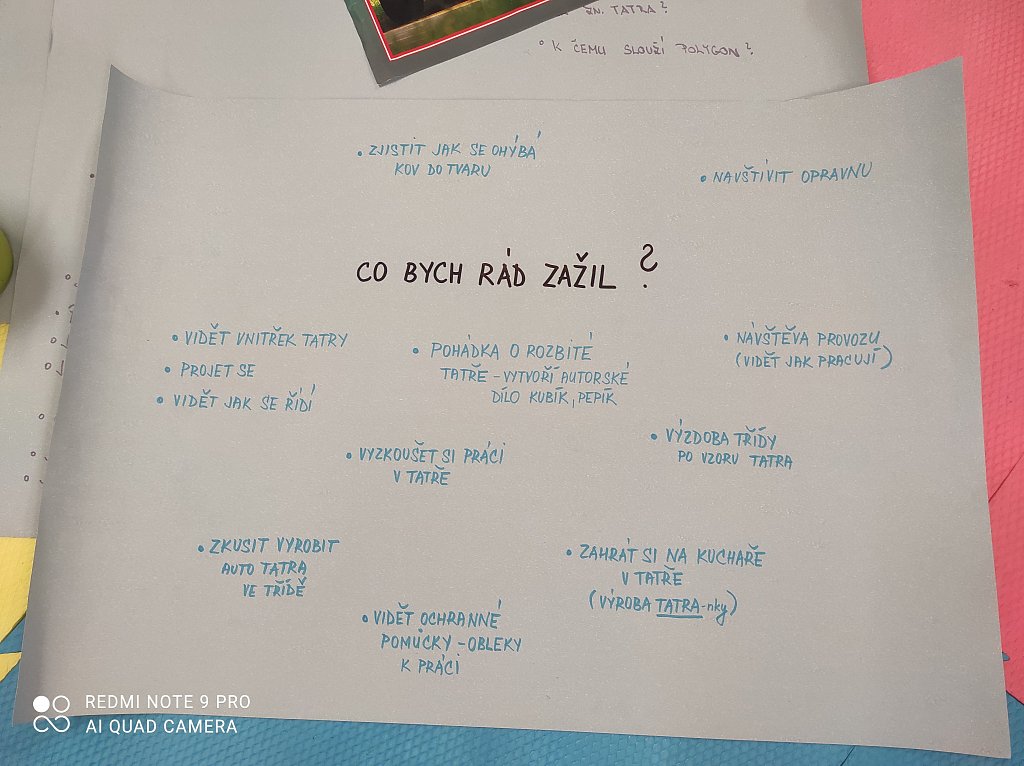 ZN. TATRA?
° K ČEMU SLOUŽÍ POLYGON?
• ZJISTIT JAK SE OHÝBÁ
KOV DO TVARU
• NAVŠTÍVIT OPRAVNU
CO BYCH RÁD ZAŽIL ?
• VIDĚT VNITŘEK TATRY
• PROJET SE
• VIDĚT JAK SE ŘÍDÍ
• POHÁDKA O ROZBITÉ
TATŘE - VYTVOŘÍ AUTORSKÉ
DÍLO KUBÍK, PEPÍK
• NÁVŠTĚVA PROVOZU
(VIDĚT JAK PRACUJÍ)
• VYZKOUŠET SI PRÁCI
V TATŘE
• VÝZDOBA TŘÍDY
PO VZORU TATRA
• ZKUSIT VYROBIT
AUTO TATRA
VE TŘÍDĚ
• ZAHRÁT SI NA KUCHAŘE
V TATŘE
(VÝROBA TATRA-nky)
• VIDĚT OCHRANNÉ
POMŮCKY - OBLEKY
K PRÁCI
REDMI NOTE 9 PRO
AI QUAD CAMERA